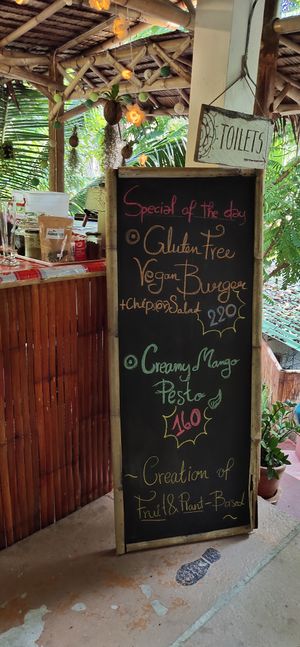 TOILETS
Special of the day
Gluten Free
Vegan Burger
+Chips or Salad
220
Creamy Mango
Pesto
160
~ Creation of
Fruit & Plant-Based ~